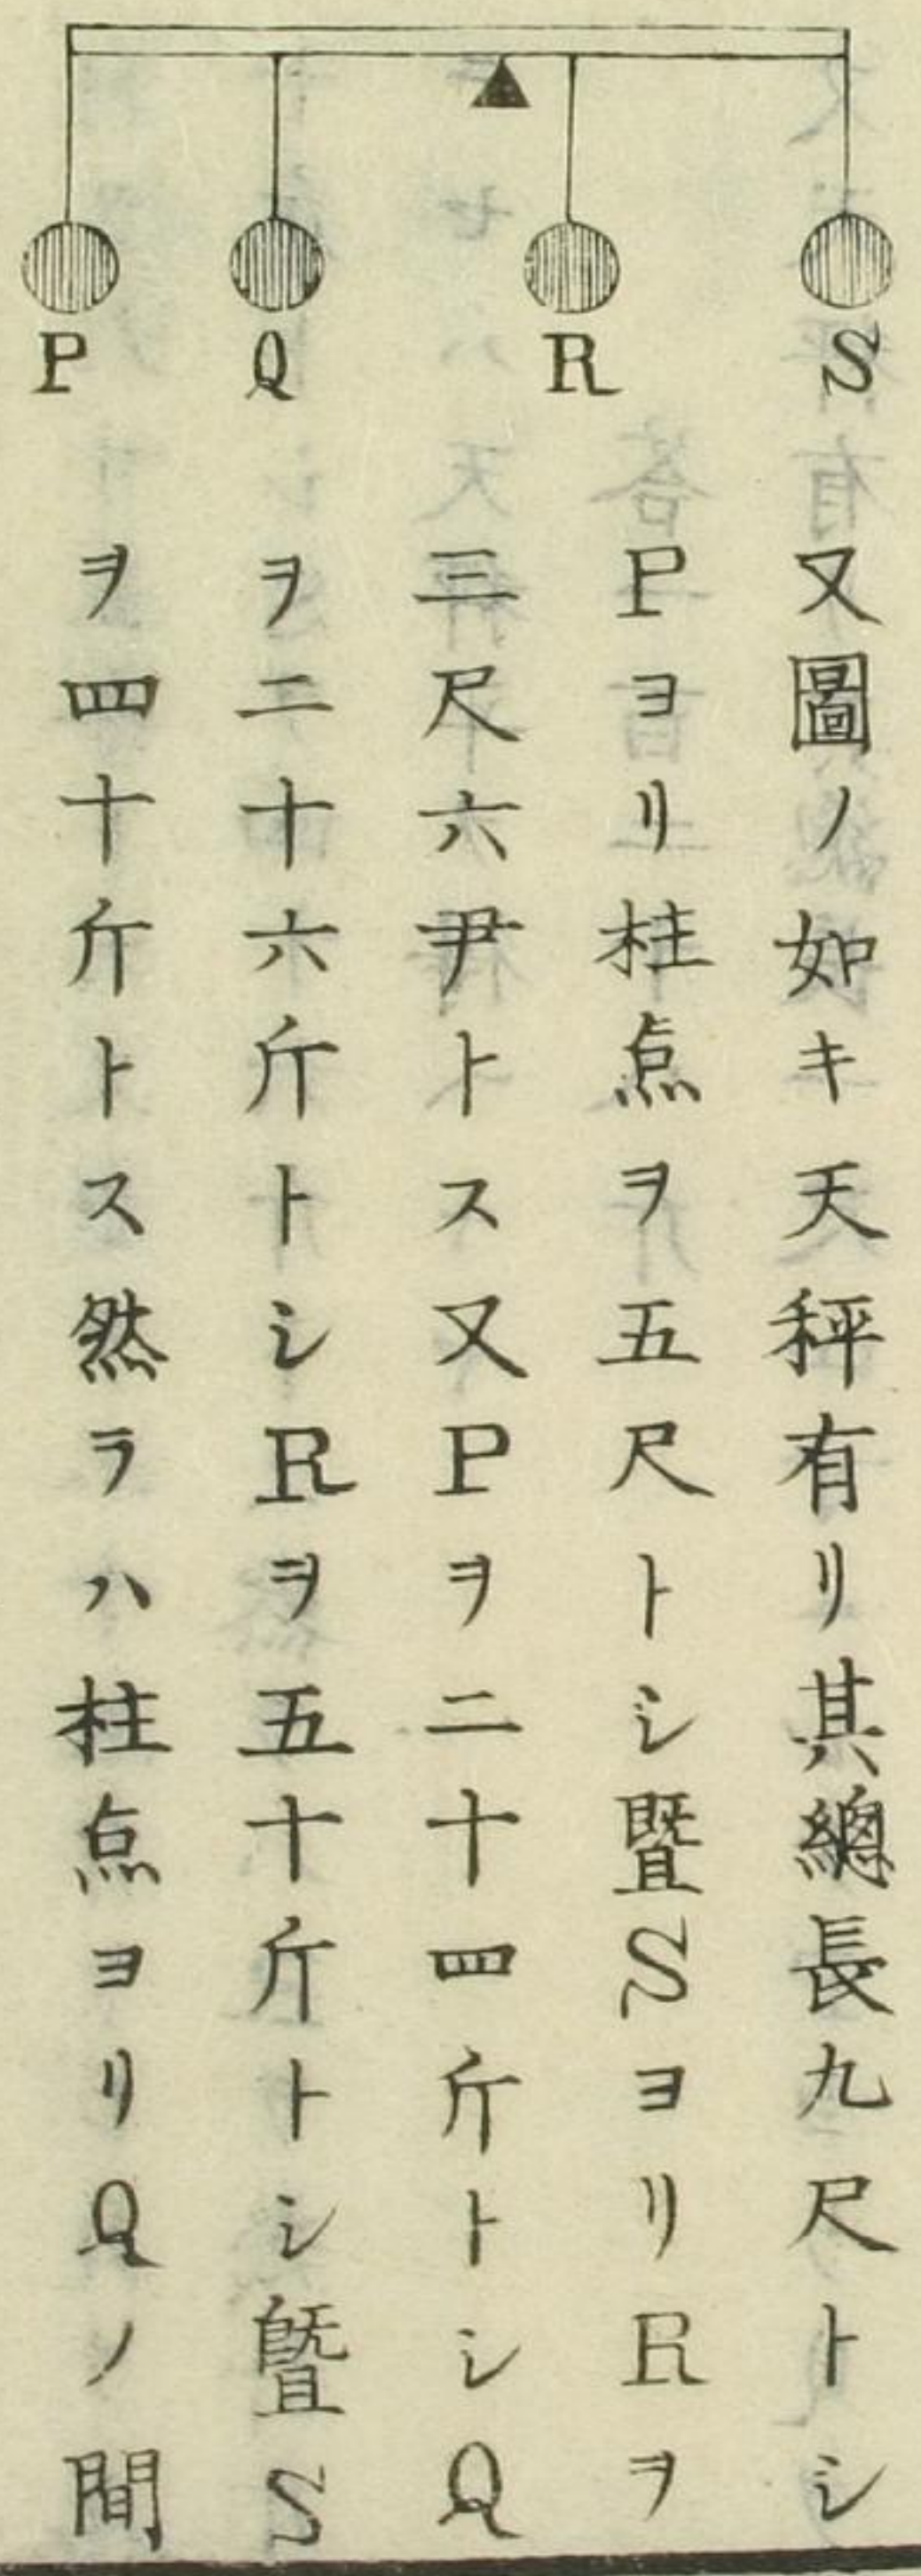 P Q R S
又圖ノ如キ天秤有リ其總長九尺トシ
Pヨリ柱点ヲ五尺トシ曁SヨリRヲ
三尺六尹トス又Pヲ二十四斤トシQ
ヲ二十六斤トシRヲ五十斤トシ曁S
ヲ四十斤トス然ラハ柱点ヨリQノ間